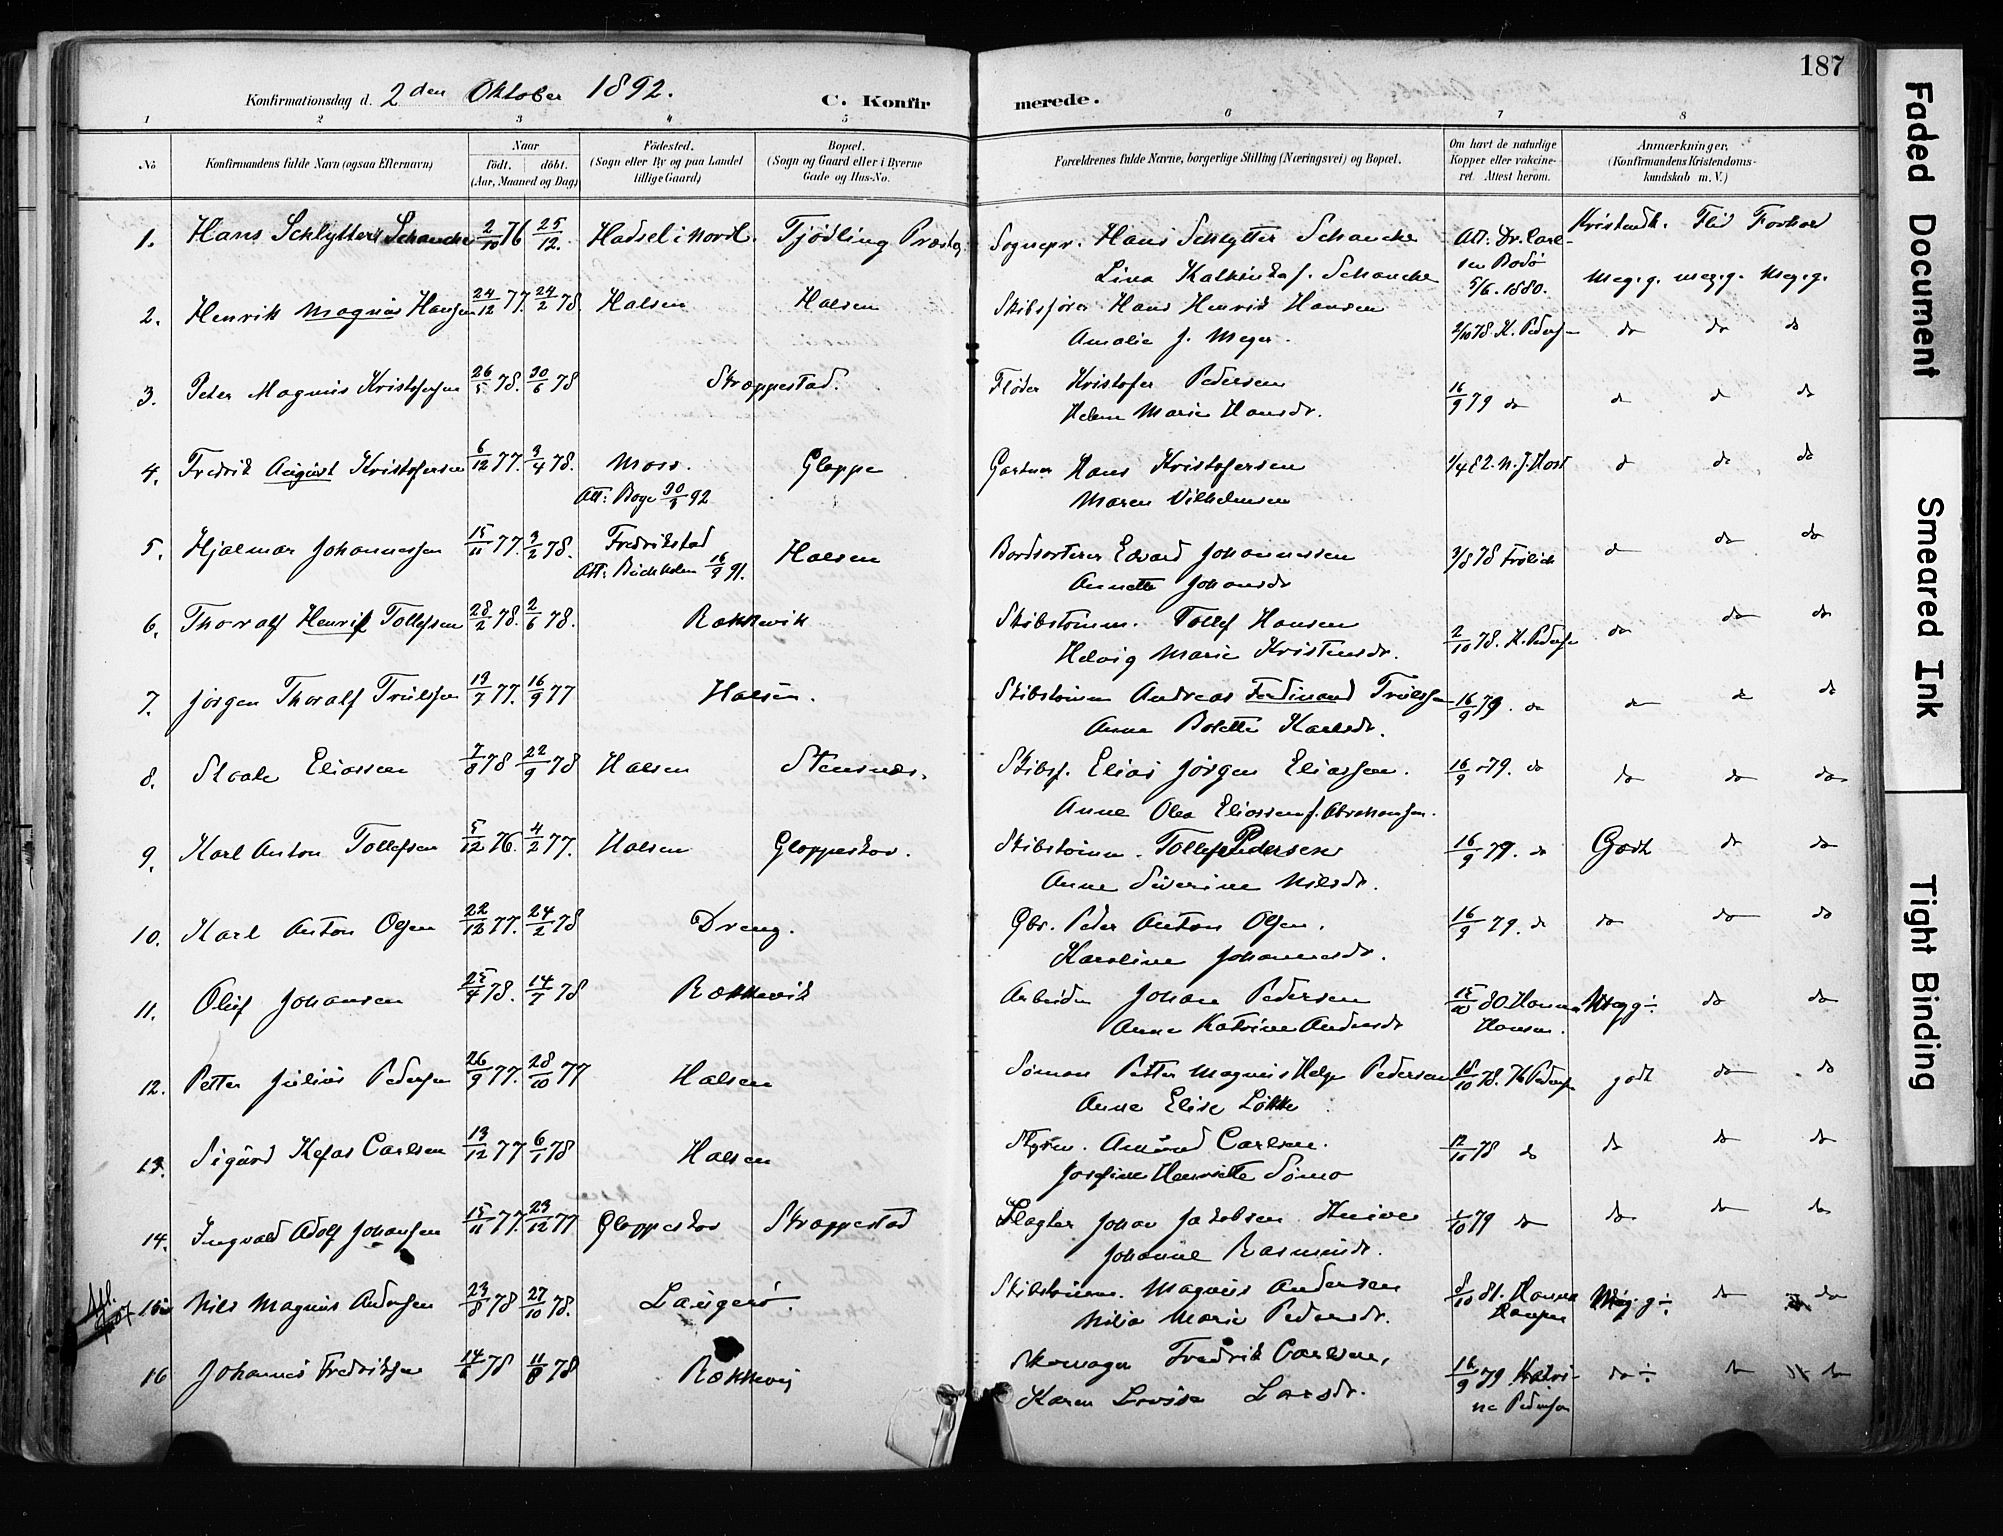 187
Konfirmationsdag d. 2den Oktober 1892. C. Konfirmerede.
1 2 3 4 5 6 7 8
No Konfirmandens fulde Navn (ogsaa Efternavn) Naar födt. döbt. (Aar, Maaned og Dag) Födested. (Sogn eller By og paa Landet tillige Gaard) Bopæl. (Sogn og Gaard eller i Byerne Gade og Hus-No. Forældrenes fulde Navne, borgerlige Stilling (Næringsvei) og Bopæl. Om havt de naturlige Kopper eller vakcineret. Attest herom. Anmærkninger. (Konfirmandens Kristendomskundskab m. V.)
Kristendk. Flid Forhold
1. Hans Schlytter Schancke 2/10 76 25/12. Hadsel i Nordl. Tjödling Præsteg. Sognepr. Hans Schlytter Schancke Att: Dr. Carl-
Lina Kathinka f. Schancke sen Bodö 5/6. 1880. Meg. g. meg. g. Meg. g.
2. Henrik Magnus Hansen 24/12 77. 24/2 78. Halsen Halsen Skibsförer Hans Henrik Hansen
Amalie f. Meyer. 2/10 78. K. Pedersen do do do
3. Peter Magnus Kristofersen 26/5 78. 30/6 78 Stroppestad. Flöder Kristofer Pedersen 16/9 79 do do do do
Helene Marie Hansdr.
4. Fredrik August Kristofersen 6/12 77. 3/4 78. Moss. Gloppe Gartner Hans Kristofersen 1/4 82. N. J. Horst do do do
Att: Boye 30/ 92 Maren Vilhelmsen
5. Hjalmar Johannessen 15/11 77. 3/2 78. Fredrikstad Halsen Bordsorterer Edvard Johannessen 3/8 78 Frölich do do do
Att: Buckholm 16/9 91. Annette Johansdr
6. Thoralf Henrik Tollefsen 28/2 78. 2/6 78. Rækkevik Skibstömm. Tollef Hansen 2/10 78. K. Pedersen do do do
Helvig Marie Kristensdr.
7. Jörgen Thoralf Trulsen 19/7 77. 16/9 77 Halsen. Skibstömm Andreas Ferdinand Trulssen 16/9 79. do do do do
Anne Bolette Karlsdr.
8. Skoale Eliassen 7/8 78 22/9 78 Halsen Stensnæs. Skibsf. Elias Jörgen Eliassen. 16/9 79. do do do do
Anne Olea Eliassen f. Abrahamsen.
9. Karl Anton Tollefsen 5/12 76. 4/2 77. Halsen Gloppeskov. Skibstömm. Tollef Pedersen 16/9 79. do Godt do do
Anne Siverine Nilsdr.
10. Karl Anton Olsen 22/12 77. 24/2 78 Dreng. Gbr. Peder Anton Olsen. 16/9 79. do do do do
Karoline Johannesdr.
11. Oluf Johansen 25/4 78. 14/7 78 Rækkevik Arbeider Johan Pedersen 15/10 80 Hanna Megg÷ do do
Anne Katrine Andersdr Hansen.
12. Petter Julius Pedersen 26/9 77. 28/10 77 Halsen Sömand Petter Magnus Helge Pedersen 18/10 78. K Pedersen godt do do
Anne Elise Lökke
13. Sigurd Kefas Carlsen 13/12 77 6/1 78 Halsen Styrm. Amund Carlsen. 12/10 78 do do do do
Josefine Henriette Sömo
14. Ingvald Adolf Johansen 15/11 77. 23/12 77 Gloppeskov Stroppestad Slagter Johan Jakobsen 1/10 79 do do do do
Johanne Rasmusdr.
15. Nils Magnus Andersen 23/8 78 27/10 78. Laugerö. Skibstömm. Magnus Andersen 8/10 81. Hanna Meg. g÷ do do
Nilia Marie Pedersdr. Hansen
16 Johannes Fredriksen 14/6 78 11/8 78 Rækkevig Skomager Fredrik Carlsen, 16/9 79 Katri- do÷ do do
Karen Lovise Larsdr. ne Pedersen
Faded Document
Smeared Ink
Tight Binding